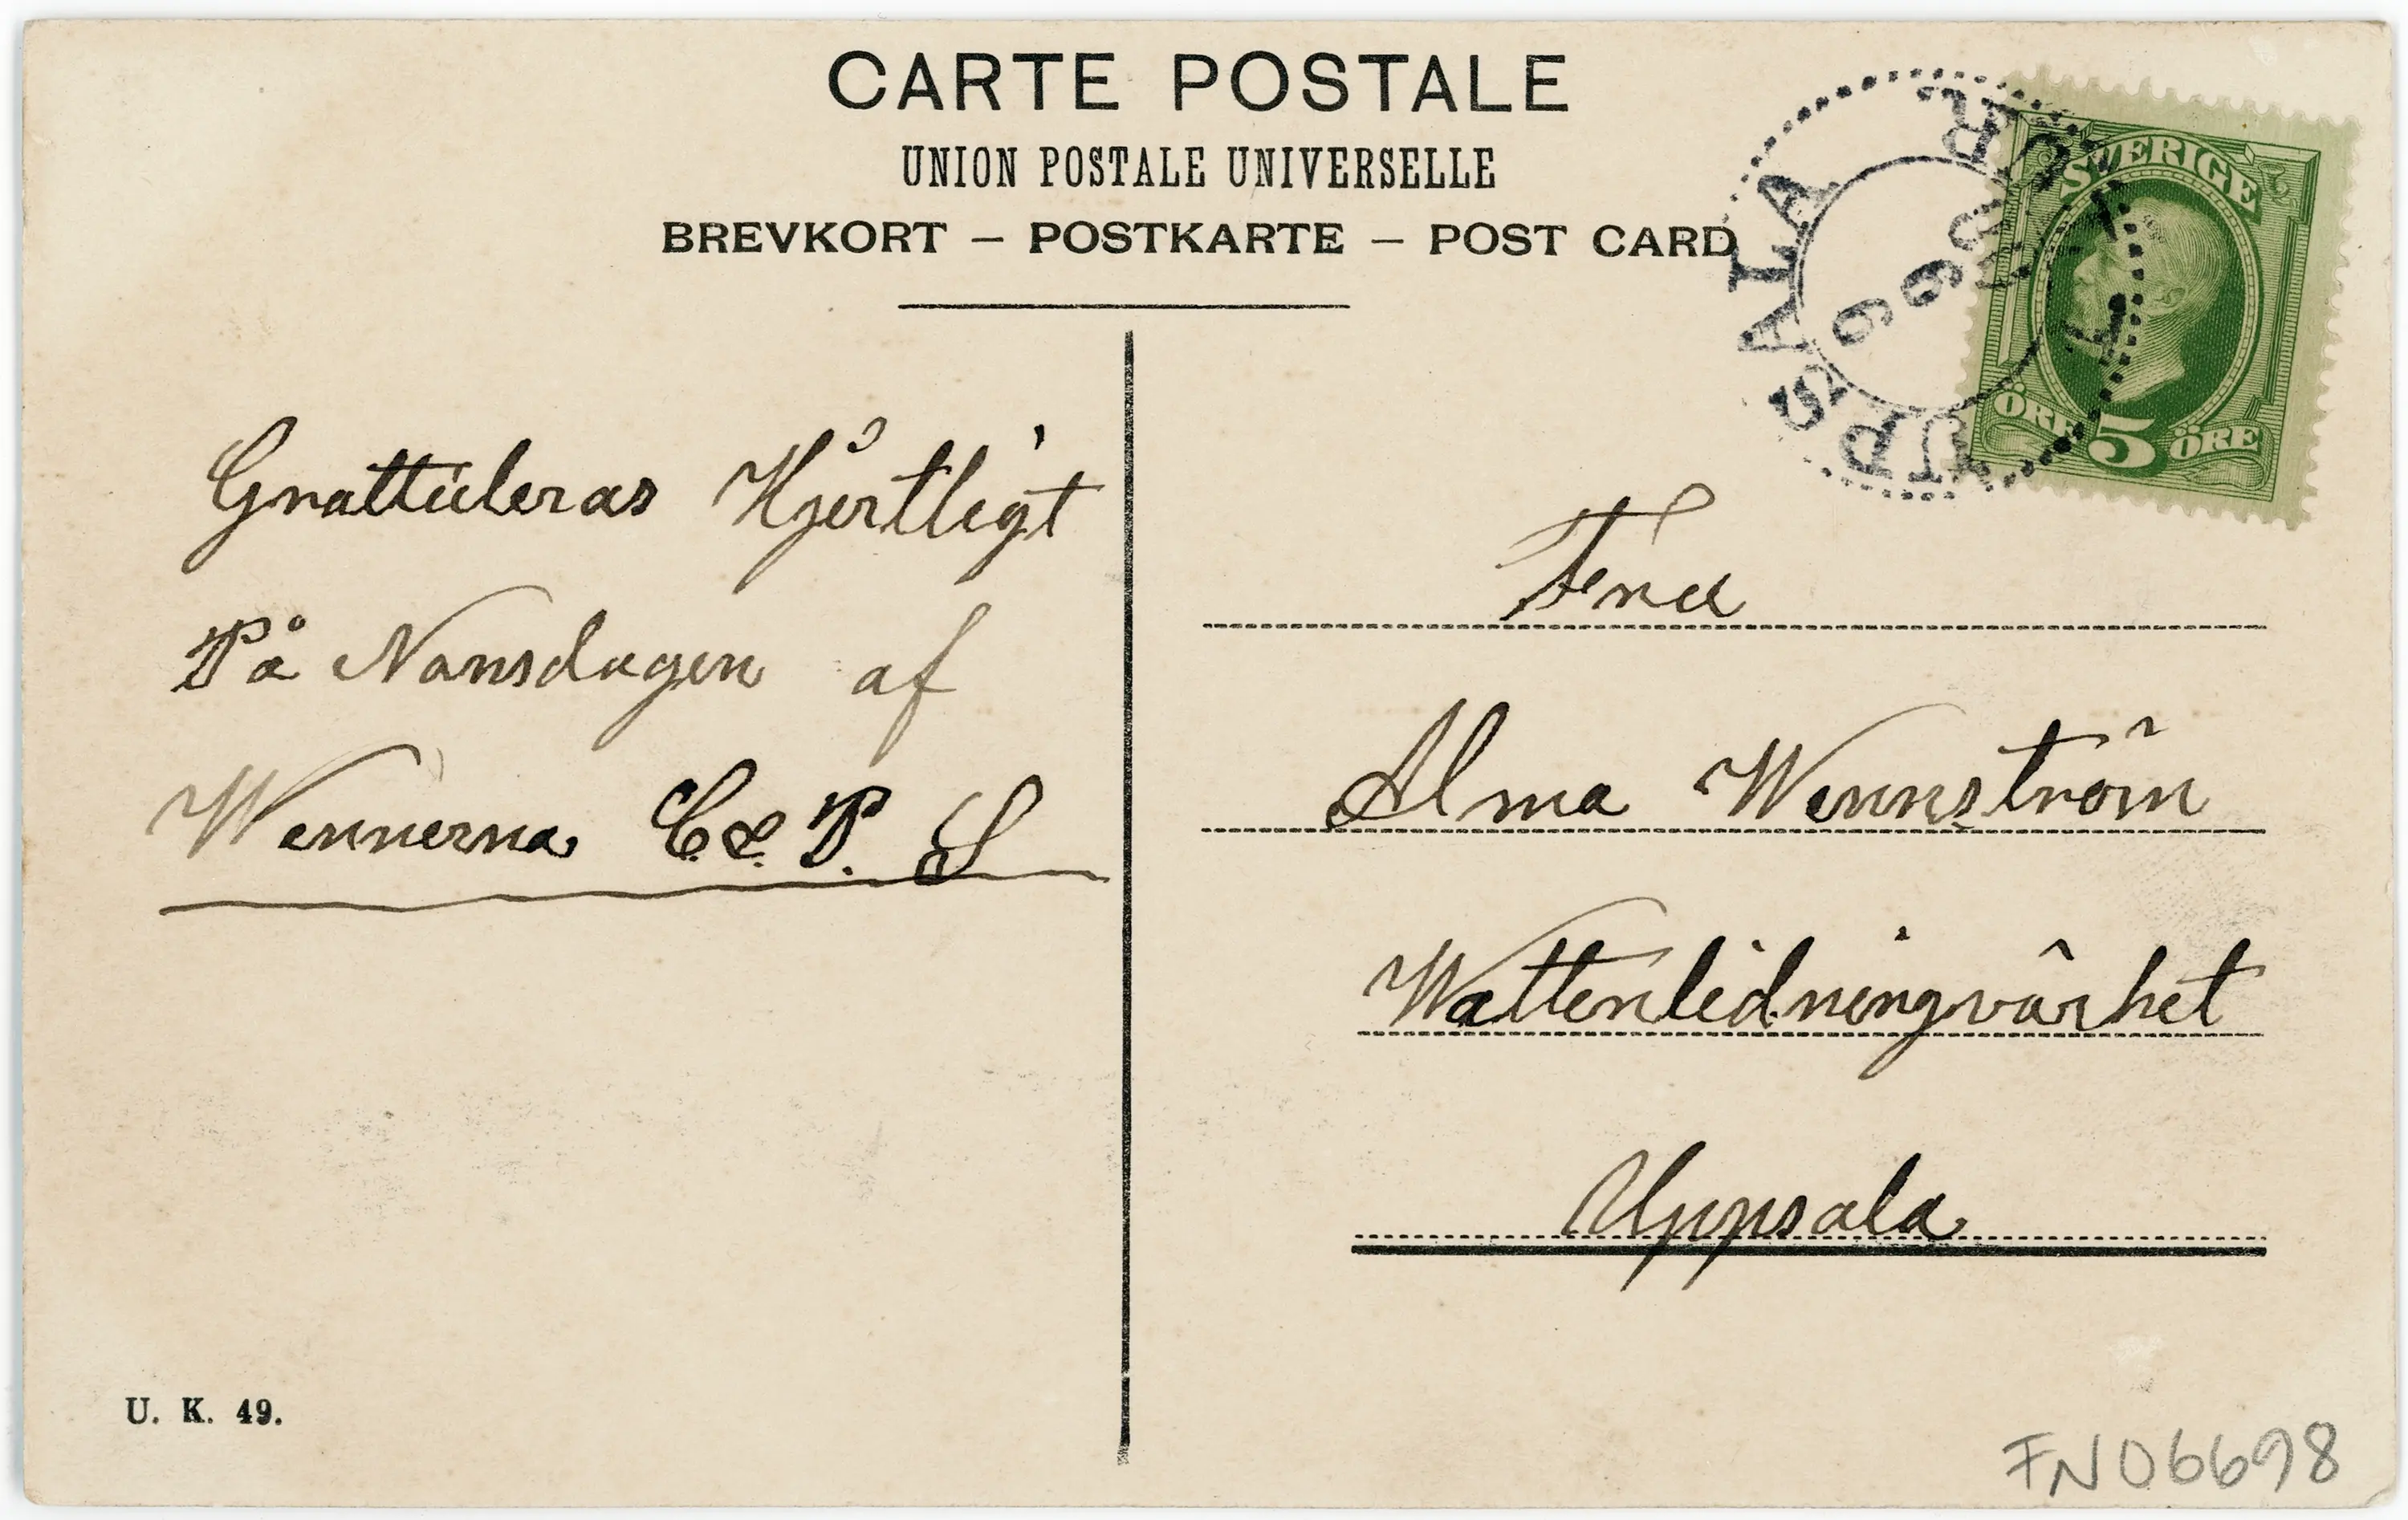 CARTE POSTALE
UNION POSTALE UNIVERSELLE
BREVKORT — POSTKARTE — POST CARD
UPSALA
SVERIGE
ÖRE 5 ÖRE
Grattuleras Hjertligt
På Nansdagen af
Wennerna C. & P. S
Fru
Alma Wennström
Wattenledningvärket
Uppsala
U. K. 49.
FN06698